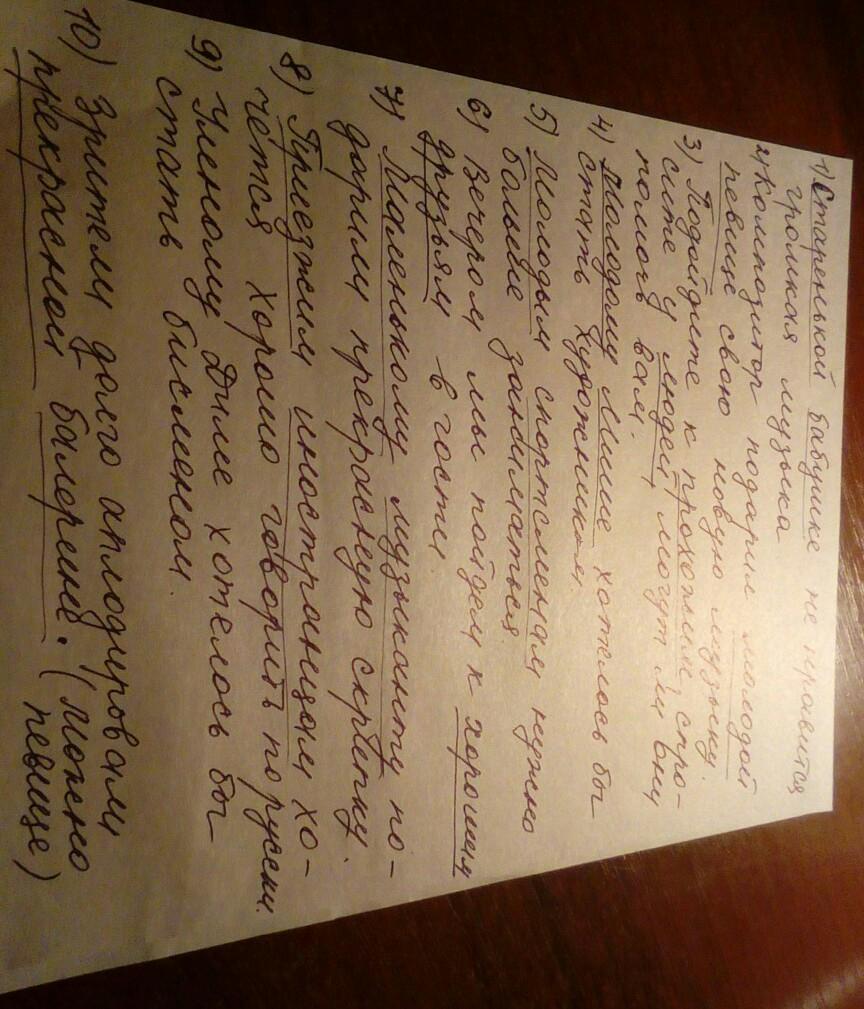 1) Старенькой бабушке не нравится
громкая музыка
2) Композитор подарил молодой
певице свою новую музыку.
3) Подойдите к прохожим, спро-
сите у людей, могут ли они
помочь вам.
4) Молодому Мише хотелось бы
стать художником
5) Молодым спортсменам нужно
больше заниматься
6) Вечером мы пойдем к хорошим
друзьям в гости
7) Маленькому музыканту по-
дарили прекрасную скрипку.
8) Приезжим иностранцам хо-
чется хорошо говорить по русски.
9) Ученому Диме хотелось бы
стать
10) Зрители долго аплодировали
прекрасной балерине. (Можно
певице)